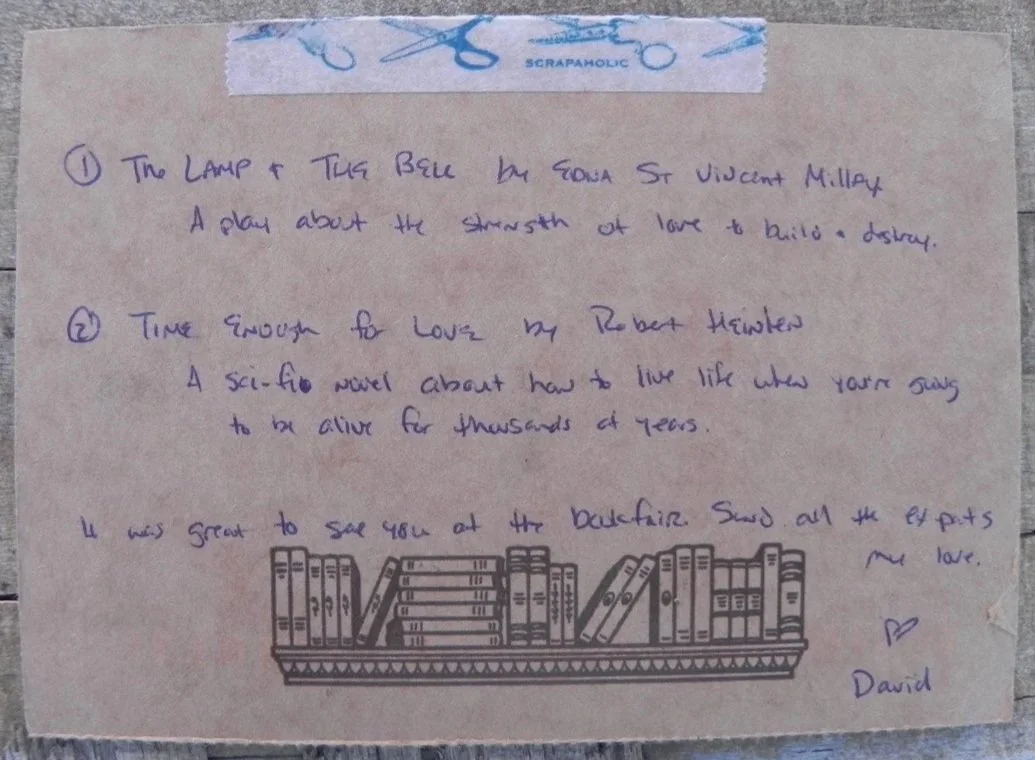 SCRAPAHOLIC
① The LAMP & THE BELL by EDNA ST Vincent Millay
A play about the strength of love to build & destroy.
② TIME ENOUGH for LOVE by Robert Heinlen
A sci-fi novel about how to live life when you're going
to be alive for thousands of years.
It was great to see you at the bookfair. Send all the ex pats
my love.
♡
David